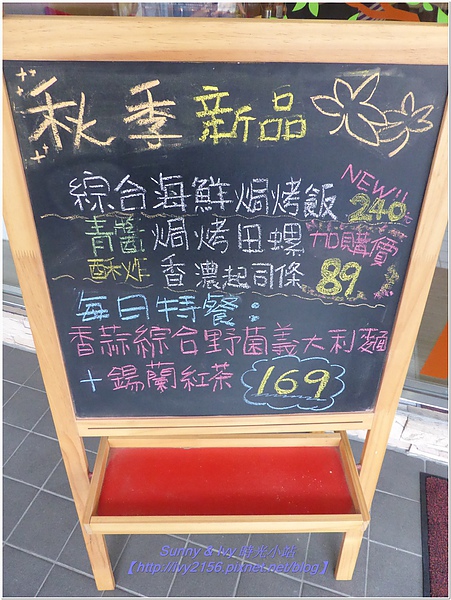 秋季新品
NEW!!
綜合海鮮焗烤飯 240
青醬焗烤田螺 加購價
酥炸香濃起司條 89
每日特餐：
香蒜綜合野菌義大利麵
+錫蘭紅茶 169
Sunny & Ivy 時光小站
【http://ivy2156.pixnet.net/blog】